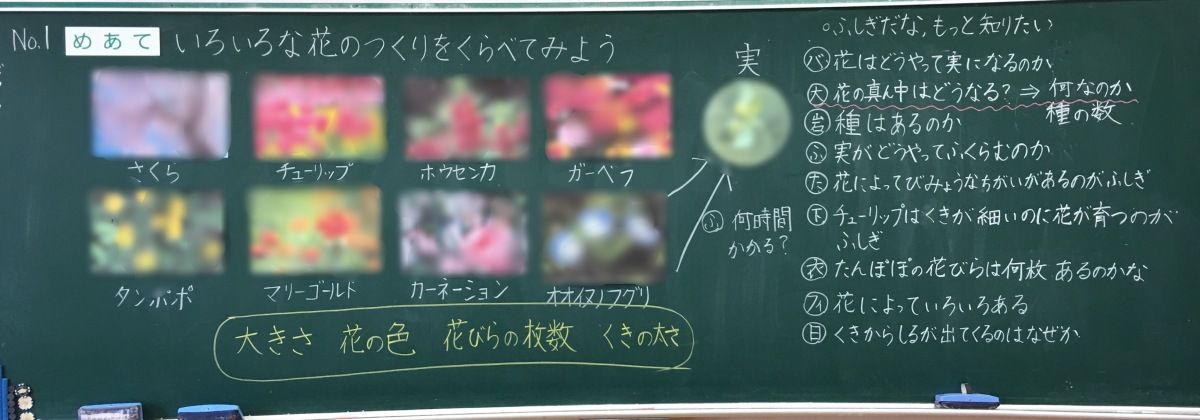 No.1 めあて いろいろな花のつくりをくらべてみよう
さくら チューリップ ホウセンカ ガーベラ
タンポポ マリーゴールド カーネーション オオイヌノフグリ
大きさ 花の色 花びらの枚数 くきの太さ
実
ふ 何時間
かかる?
○ふしぎだな,もっと知りたい
バ 花はどうやって実になるのか
大 花の真ん中はどうなる? ⇒ 何なのか
種の数
岩 種はあるのか
ふ 実がどうやってふくらむのか
た 花によってびみょうなちがいがあるのがふしぎ
下 チューリップはくきが細いのに花が育つのが
ふしぎ
衣 たんぽぽの花びらは何枚あるのかな
フィ 花によっていろいろある
日 くきからしるが出てくるのはなぜか